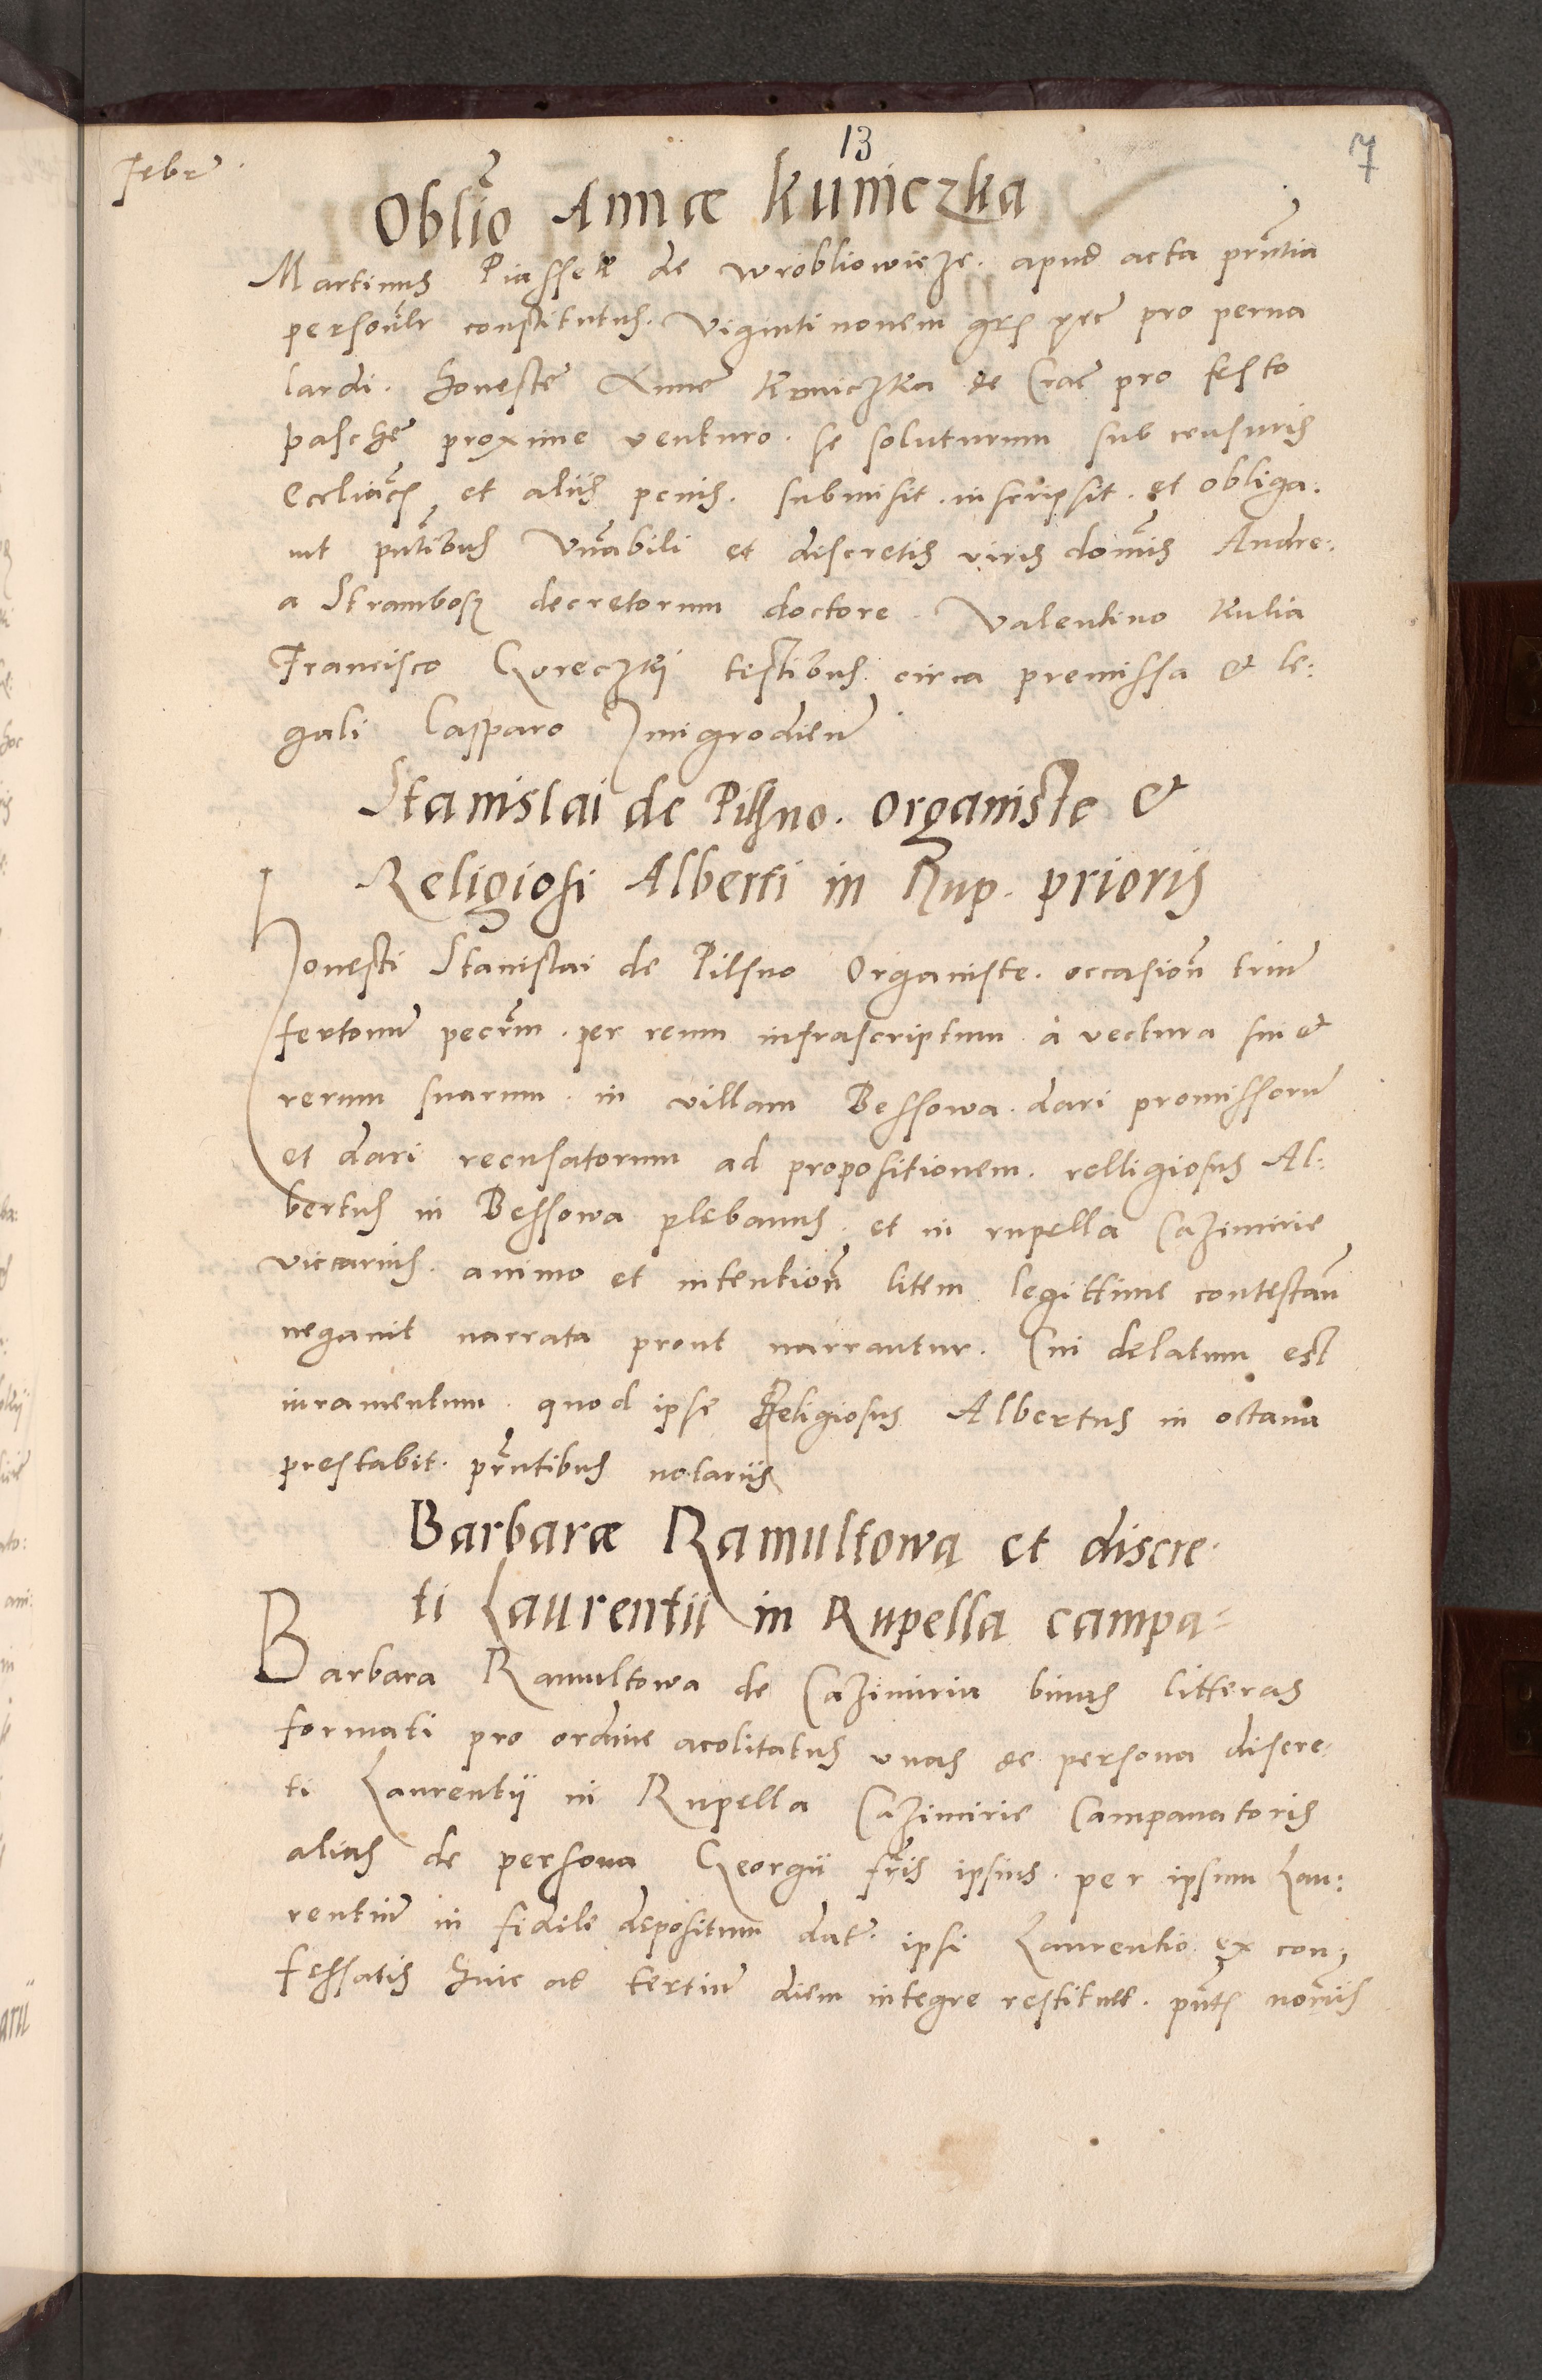 13
7
Febr
Oblio Annæ Kuniczka
Martinus Piassek de Wrobliowicze. apud acta prntia
personlr constitutus. Viginti novem grs pro perna
lardi. honeste Anne Kuniczka de Crac pro festo
pasche proxime venturo. se soluturum sub censuris
Eccliacs et aliis penis. submisit. inscripsit. et obliga.
vit pntibus Vnabili et discretis viris domis Andre:
a Strambosz decretorum doctore. Valentino Kulia
Francisco Goreczki testibus circa premissa & le:
gali Casparo Zmigrodien
Stanislai de Pilsno. organiste &
Religiosi Alberti in Rup. prioris
Honesti Stanislai de Pilsno Organiste. occasion trium
fertonum pecrm. per reum infrascriptum à vectura sui &
rerum suarum. in villam Bessowa. dari promissorum
et dari recusatorum ad propositionem. relligiosus Al:
bertus in Bessowa plebanus. et in rupella Cazimirie
viccarius. animo et intention litem legittime contestan
negavit narrata prout narrantur. Cui delatum est
iuramentum. quod ipse Religiosus Albertus in octava
prestabit. prntibus notariis
Barbaræ Ramultowa et discre.
ti Laurentii in Rupella campa-
Barbara Ramultowa de Cazimiria binas litteras
formati pro ordine acolitatus vnas de persona discre.
ti Laurentij in Rupella Cazimirie Campanatoris
alias de persona Georgii fris ipsius. per ipsum Lau:
rentium in fidele depositum dat. ipsi Laurentio ex con,
fessatis huic ad tertium diem integre restituet. pnts noriis